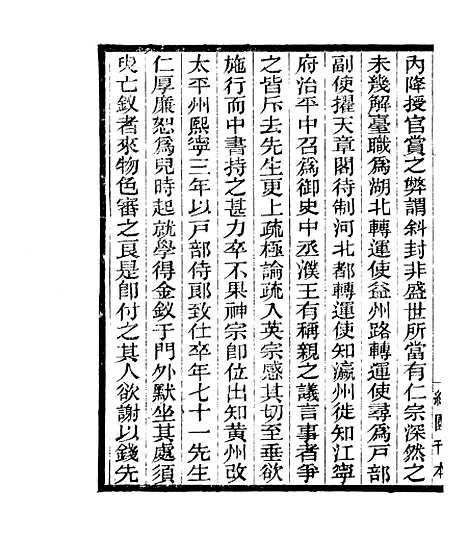 內降授官賞之弊謂斜封非盛世所當有仁宗深然之
未幾解臺職爲湖北轉運使益州路轉運使尋爲戸部
副使擢天章閣待制河北都轉運使知瀛州徙知江寧
府治平中召爲御史中丞濮王有稱親之議言事者爭
之皆斥去先生更上疏極論疏入英宗感其切至垂欲
施行而中書持之甚力卒不果神宗卽位出知黄州改
太平州熙寧三年以戸部侍郞致仕卒年七十一先生
仁厚廉恕爲兒時起就學得金釵于門外默坐其處須
臾亡釵者來物色審之良是卽付之其人欲謝以錢先